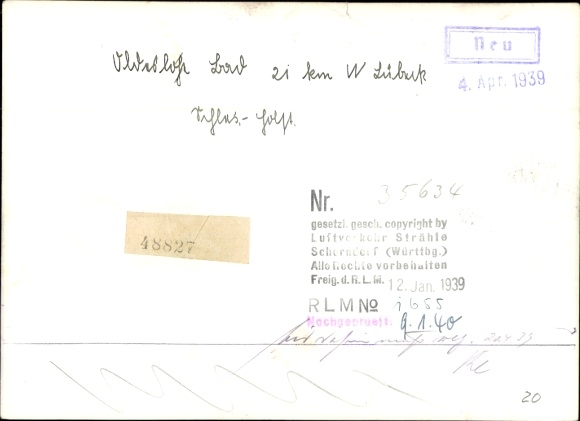 Neu
4. Apr. 1939
Oldesloe Bad 21 km W Lübeck
Schles.-Holst.
48827
Nr. 35634
gesetzl. gesch. copyright by
Luftverkehr Strähle
Schorndorf (Württbg.)
Alle Rechte vorbehalten
Freig. d. R.L.M. 12. Jan. 1939
RLM No 1655
Nachgeprueft: 9.1.40
20